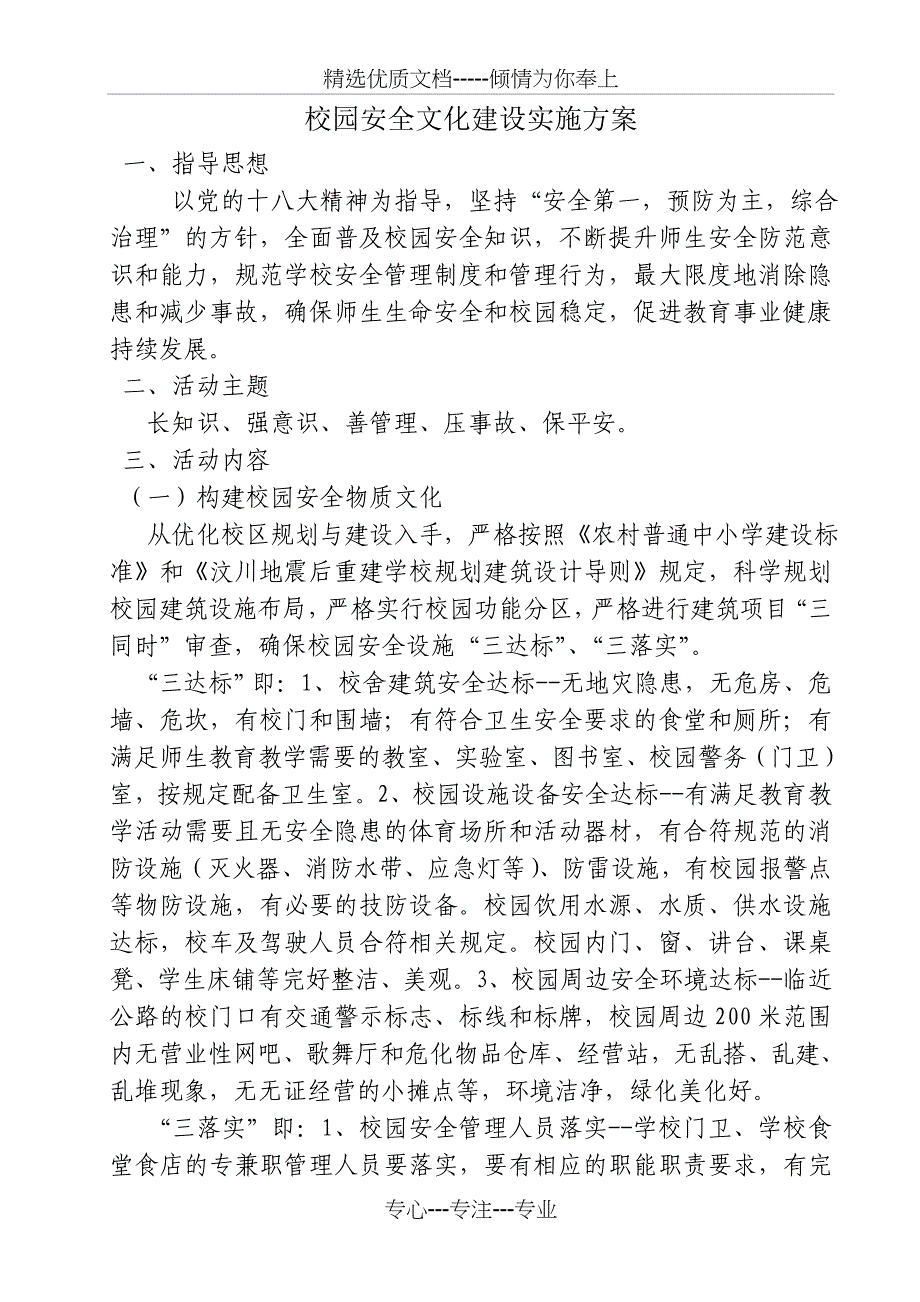 精选优质文档-----倾情为你奉上
校园安全文化建设实施方案
一、指导思想
以党的十八大精神为指导，坚持“安全第一，预防为主，综合
治理”的方针，全面普及校园安全知识，不断提升师生安全防范意
识和能力，规范学校安全管理制度和管理行为，最大限度地消除隐
患和减少事故，确保师生生命安全和校园稳定，促进教育事业健康
持续发展。
二、活动主题
长知识、强意识、善管理、压事故、保平安。
三、活动内容
（一）构建校园安全物质文化
从优化校区规划与建设入手，严格按照《农村普通中小学建设标
准》和《汶川地震后重建学校规划建筑设计导则》规定，科学规划
校园建筑设施布局，严格实行校园功能分区，严格进行建筑项目“三
同时”审查，确保校园安全设施“三达标”、“三落实”。
“三达标”即：1、校舍建筑安全达标--无地灾隐患，无危房、危
墙、危坎，有校门和围墙；有符合卫生安全要求的食堂和厕所；有
满足师生教育教学需要的教室、实验室、图书室、校园警务（门卫）
室，按规定配备卫生室。2、校园设施设备安全达标--有满足教育教
学活动需要且无安全隐患的体育场所和活动器材，有合符规范的消
防设施（灭火器、消防水带、应急灯等）、防雷设施，有校园报警点
等物防设施，有必要的技防设备。校园饮用水源、水质、供水设施
达标，校车及驾驶人员合符相关规定。校园内门、窗、讲台、课桌
凳、学生床铺等完好整洁、美观。3、校园周边安全环境达标--临近
公路的校门口有交通警示标志、标线和标牌，校园周边 200 米范围
内无营业性网吧、歌舞厅和危化物品仓库、经营站，无乱搭、乱建、
乱堆现象，无无证经营的小摊点等，环境洁净，绿化美化好。
“三落实”即：1、校园安全管理人员落实--学校门卫、学校食
堂食店的专兼职管理人员要落实，要有相应的职能职责要求，有完
专心---专注---专业